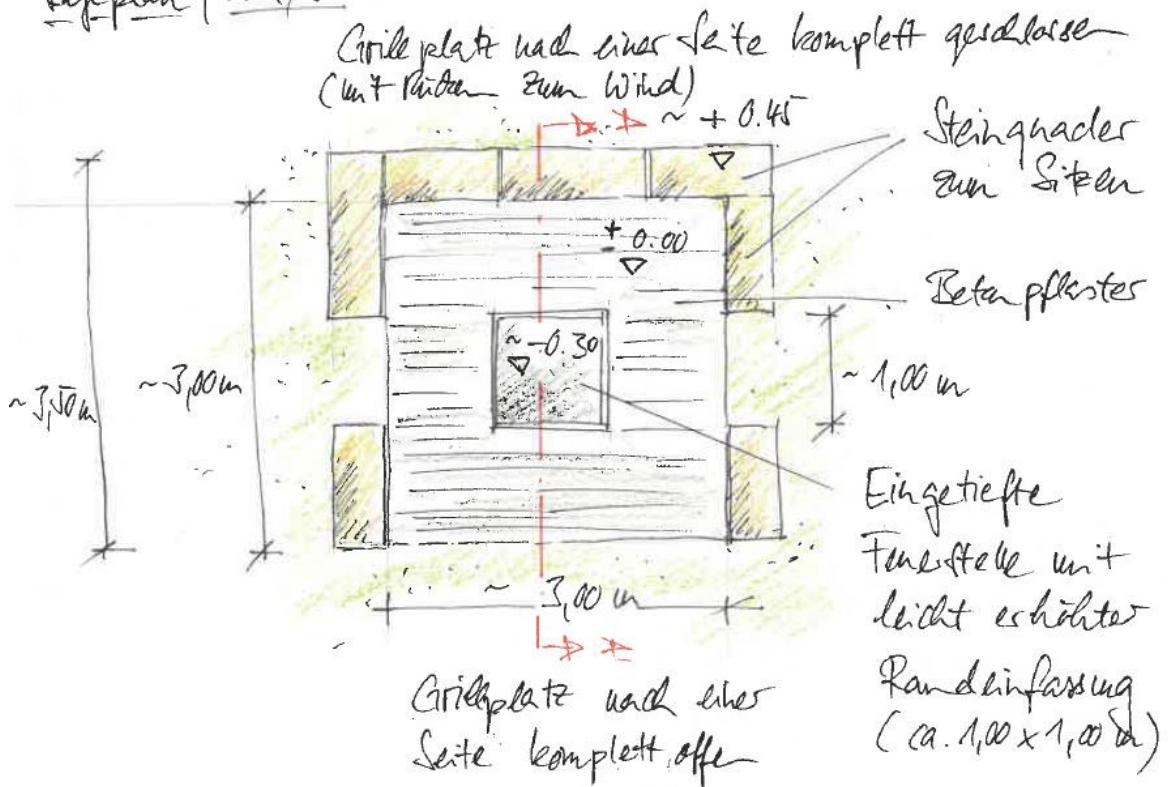 Lageplan
Grillplatz nach einer Seite komplett geschlossen
(mit Rücken zum Wind)
~ + 0.45
Steinquader
zum Sitzen
± 0.00
Betonpflaster
~ -0.30
~ 3,50 m
~ 3,00 m
~ 1,00 m
Eingetiefte
Feuerstelle mit
leicht erhöhter
Randeinfassung
(ca. 1,00 x 1,00 m)
~ 3,00 m
Grillplatz nach einer
Seite komplett offen